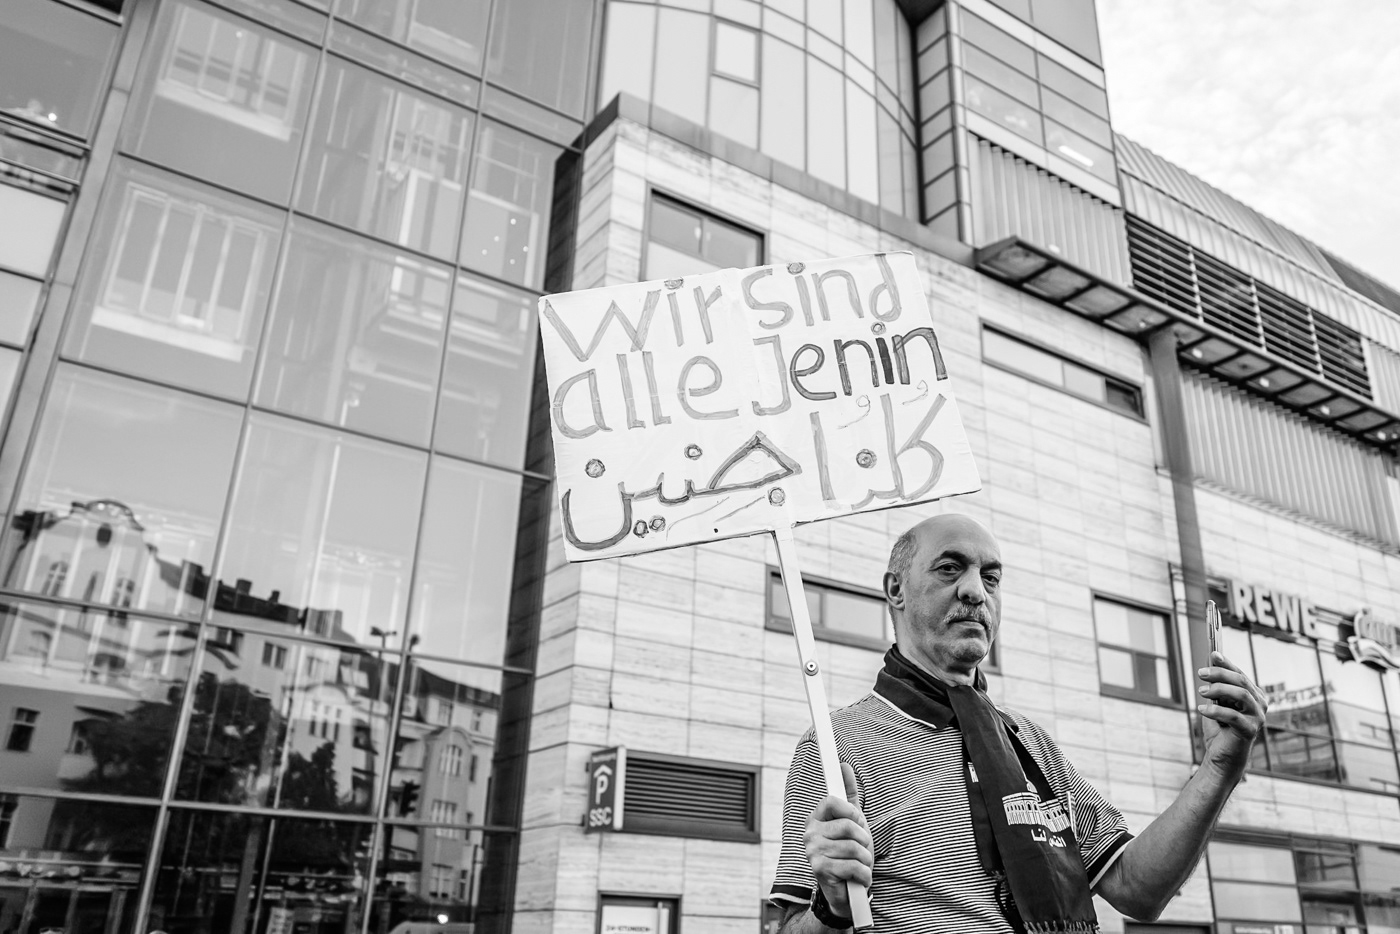 Wir sind
alle Jenin
كلنا جنين
REWE
P
SSC
القدس لنا